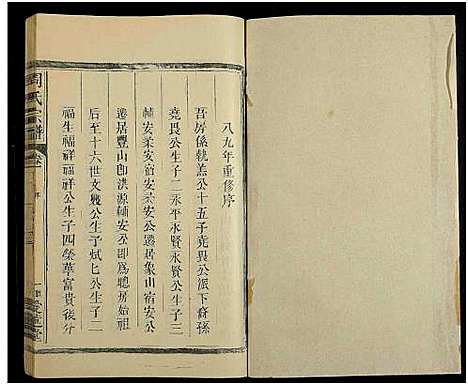 八九年重修序
吾房係軌羔公十五子堯畏公派下裔孫
堯畏公生子二永平永賢永賢公生子三
輔安柔安公遷居象山宿安公
遷居豐山卽洪源輔安公卽爲聰房始祖
后至十六世文㦤公生子斌七公生子二
福生福祥福祥公生子四榮華富貴後分
周氏宗譜
卷一
序